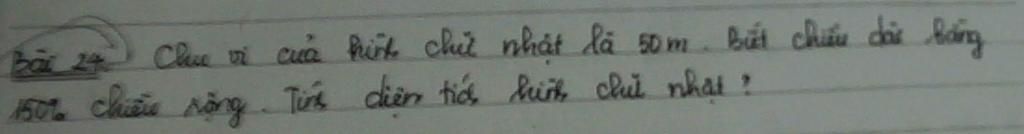 Bài 24 Chu vi của hình chữ nhật là 50 m. Biết chiều dài bằng
150% chiều rộng. Tính diện tích hình chữ nhật?